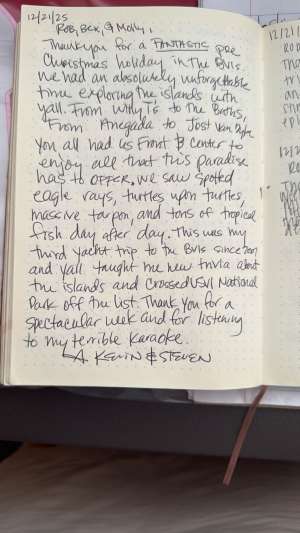 12/21/25
ROB, BEX, & MOLLY,
Thank you for a FANTASTIC pre
Christmas holiday in the BVIs.
We had an absolutely unforgettable
time exploring the islands with
yall. From Willy T's to The Baths,
From Anegada to Jost Van Dyke
you all had us Front & Center to
enjoy all that this paradise
has to OFFER. We saw spotted
eagle rays, turtles upon turtles,
massive tarpon, and tons of tropical
fish day after day. This was my
third yacht trip to the BVIs since
and yall taught me new trivia about
the islands and crossed USVI National
Park off the list. Thank you for a
spectacular week and for listening
to my terrible karaoke.
KEVIN & STEVEN
12/21/
ROB